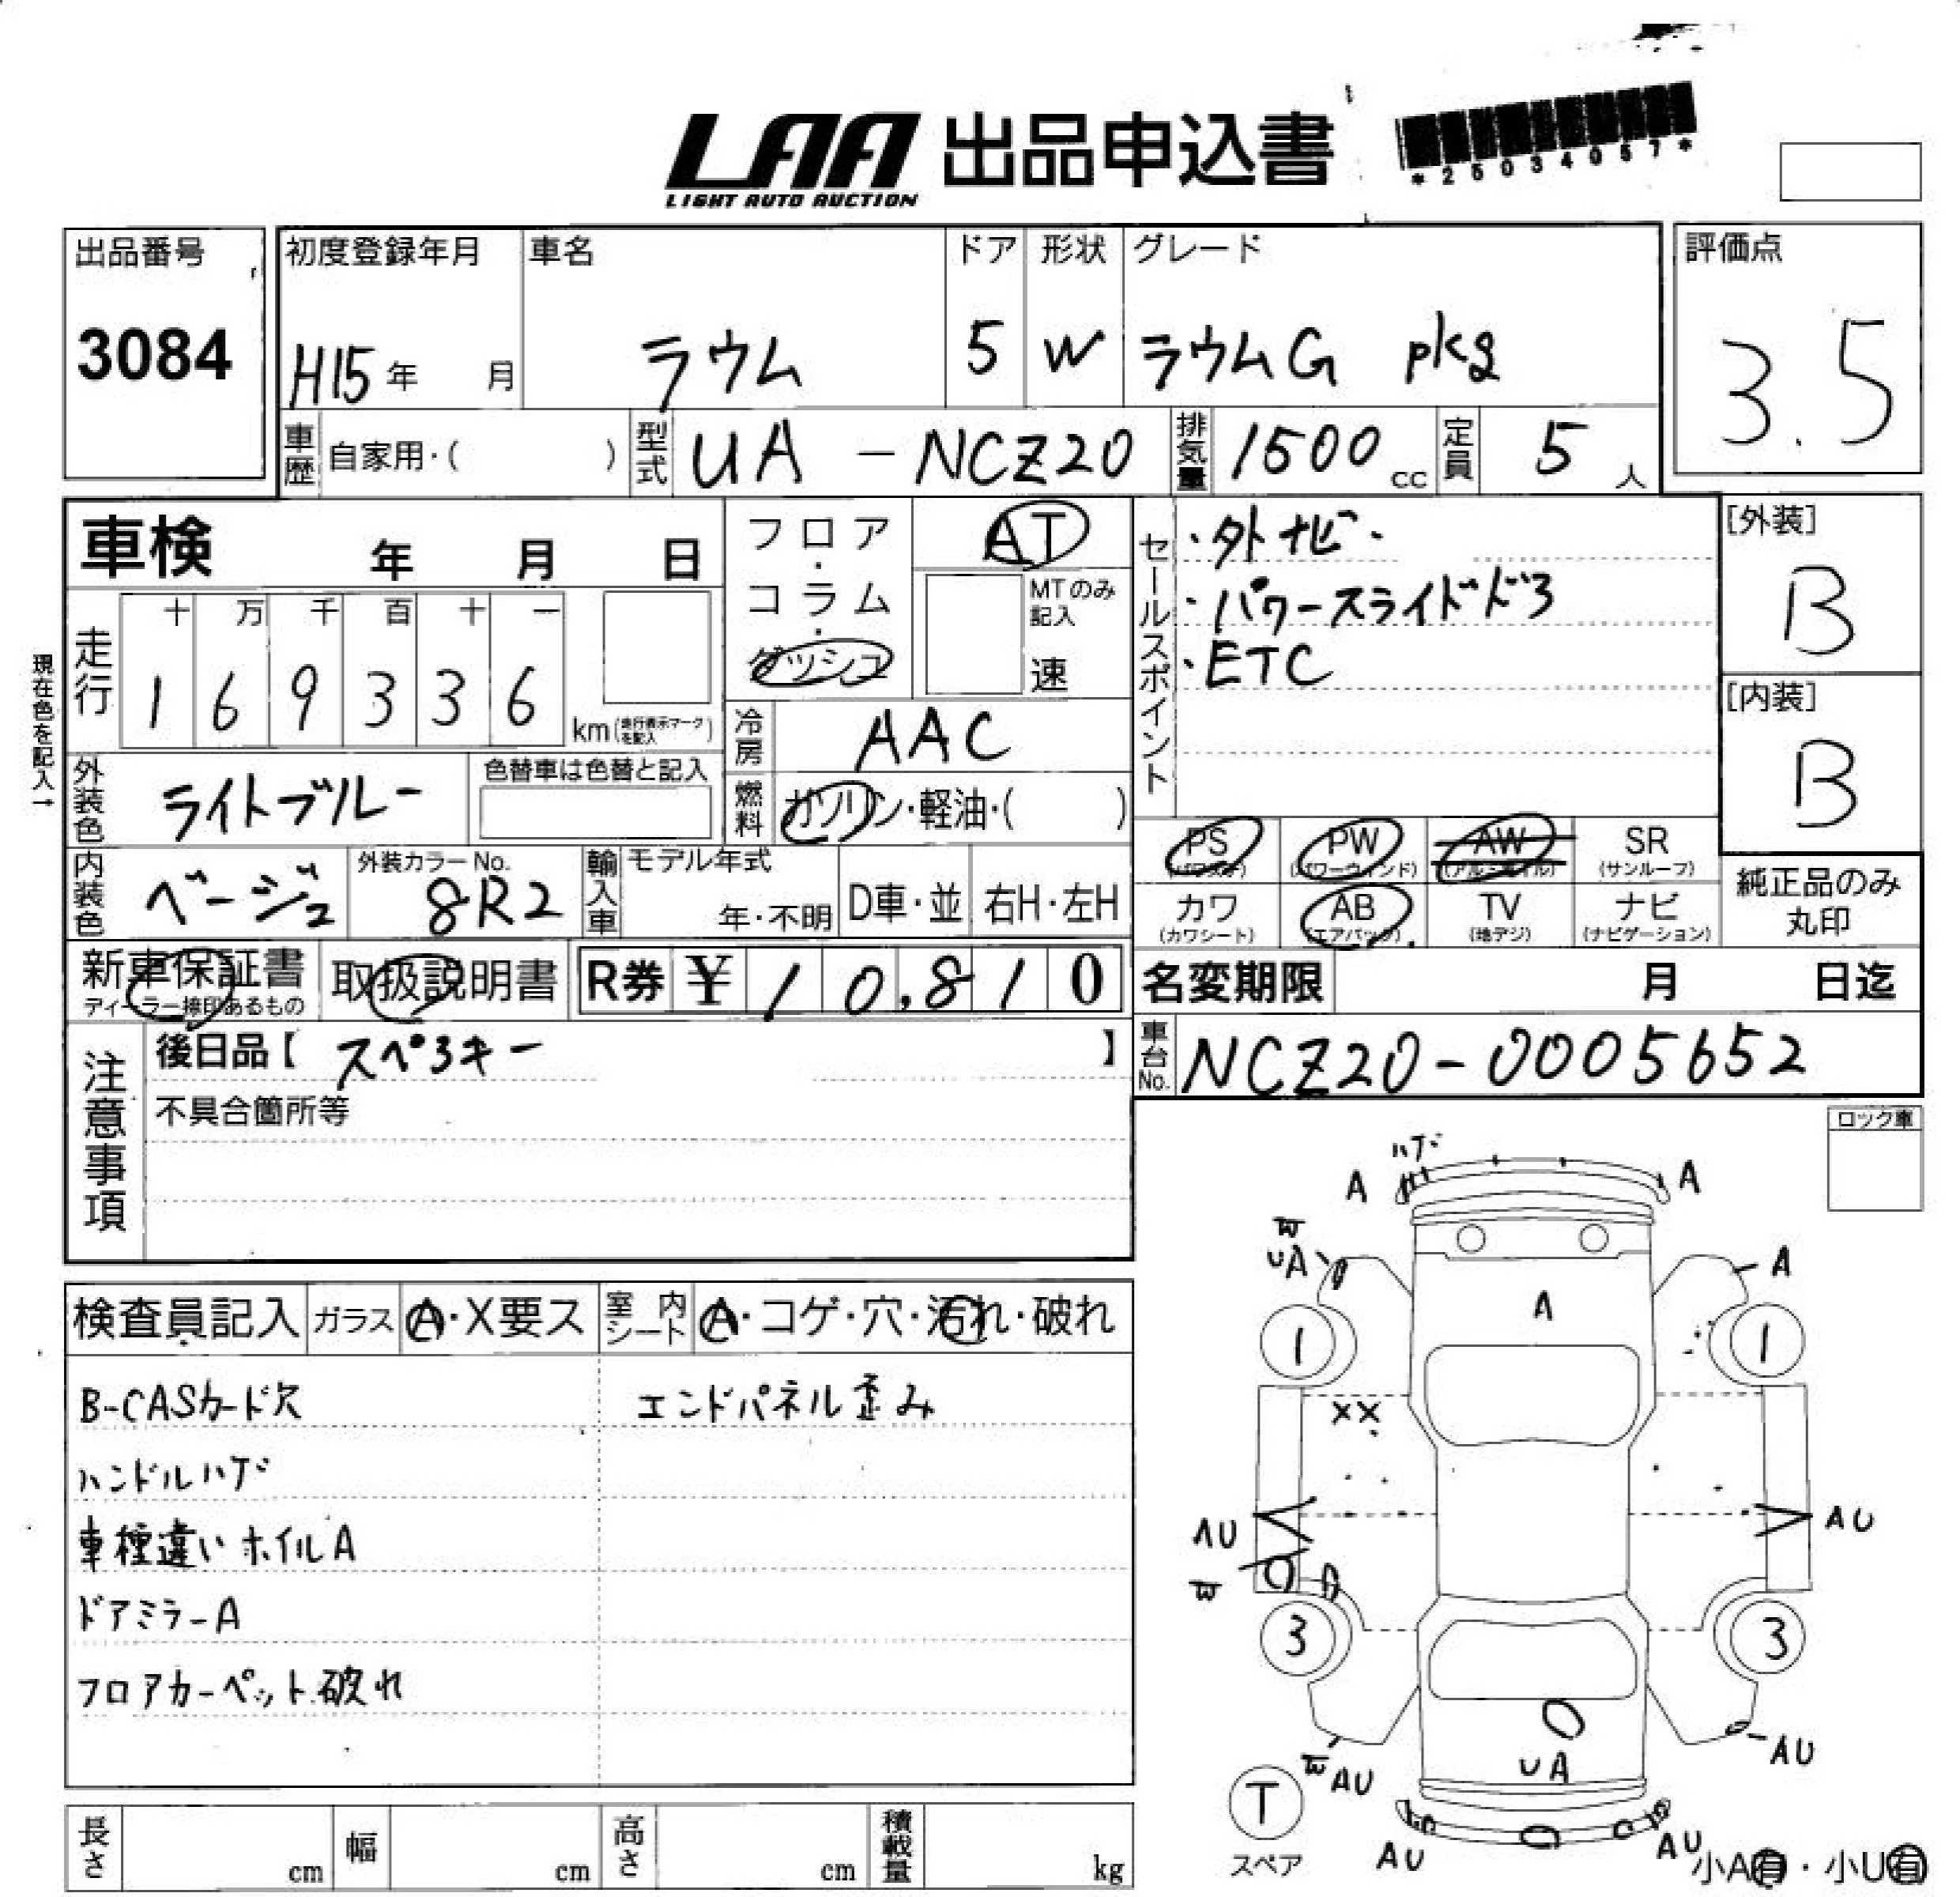 LAA 出品申込書
LIGHT AUTO AUCTION
*25034057*
出品番号
3084
初度登録年月
H15年 月
車名
ラウム
ドア
5
形状
W
グレード
ラウムG pkg
評価点
3.5
車歴 自家用・( )
型式 UA-NCZ20
排気量 1500 cc
定員 5 人
車検 年 月 日
フロア・コラム・ダッシュ
AT
MTのみ記入
速
走行
十 万 千 百 十 一
1 6 9 3 3 6
km(走行表示マークを記入)
現在色を記入→
冷房 AAC
燃料 ガソリン・軽油・( )
外装色 ライトブルー
色替車は色替と記入
内装色 ベージュ
外装カラーNo.
8R2
輸入車 モデル年式
年・不明
D車・並
右H・左H
セールスポイント
・外ナビ・
・パワースライドドラ
・ETC
[外装]
B
[内装]
B
PS
(パワステ)
PW
(パワーウィンド)
AW
(アルミホイル)
SR
(サンルーフ)
カワ
(カワシート)
AB
(エアバック)
TV
(地デジ)
ナビ
(ナビゲーション)
純正品のみ
丸印
新車保証書
ディーラー捺印あるもの
取扱説明書
R券 ¥ 10,810
名変期限 月 日迄
車台No. NCZ20-0005652
注意事項
後日品【 スペアキー 】
不具合箇所等
ロック車
検査員記入
ガラス A・X要ス
室内シート A・コゲ・穴・汚れ・破れ
B-CASカード欠
エンドパネル歪み
ハンドルハゲ
車種違いホイルA
ドアミラーA
フロアカーペット破れ
ハゲ
A
A
W
UA
A
A
1
1
XX
AU
AU
W
3
3
W AU
AU
UA
T
スペア
AU
AU
小A有・小U有
長さ cm
幅 cm
高さ cm
積載量 kg